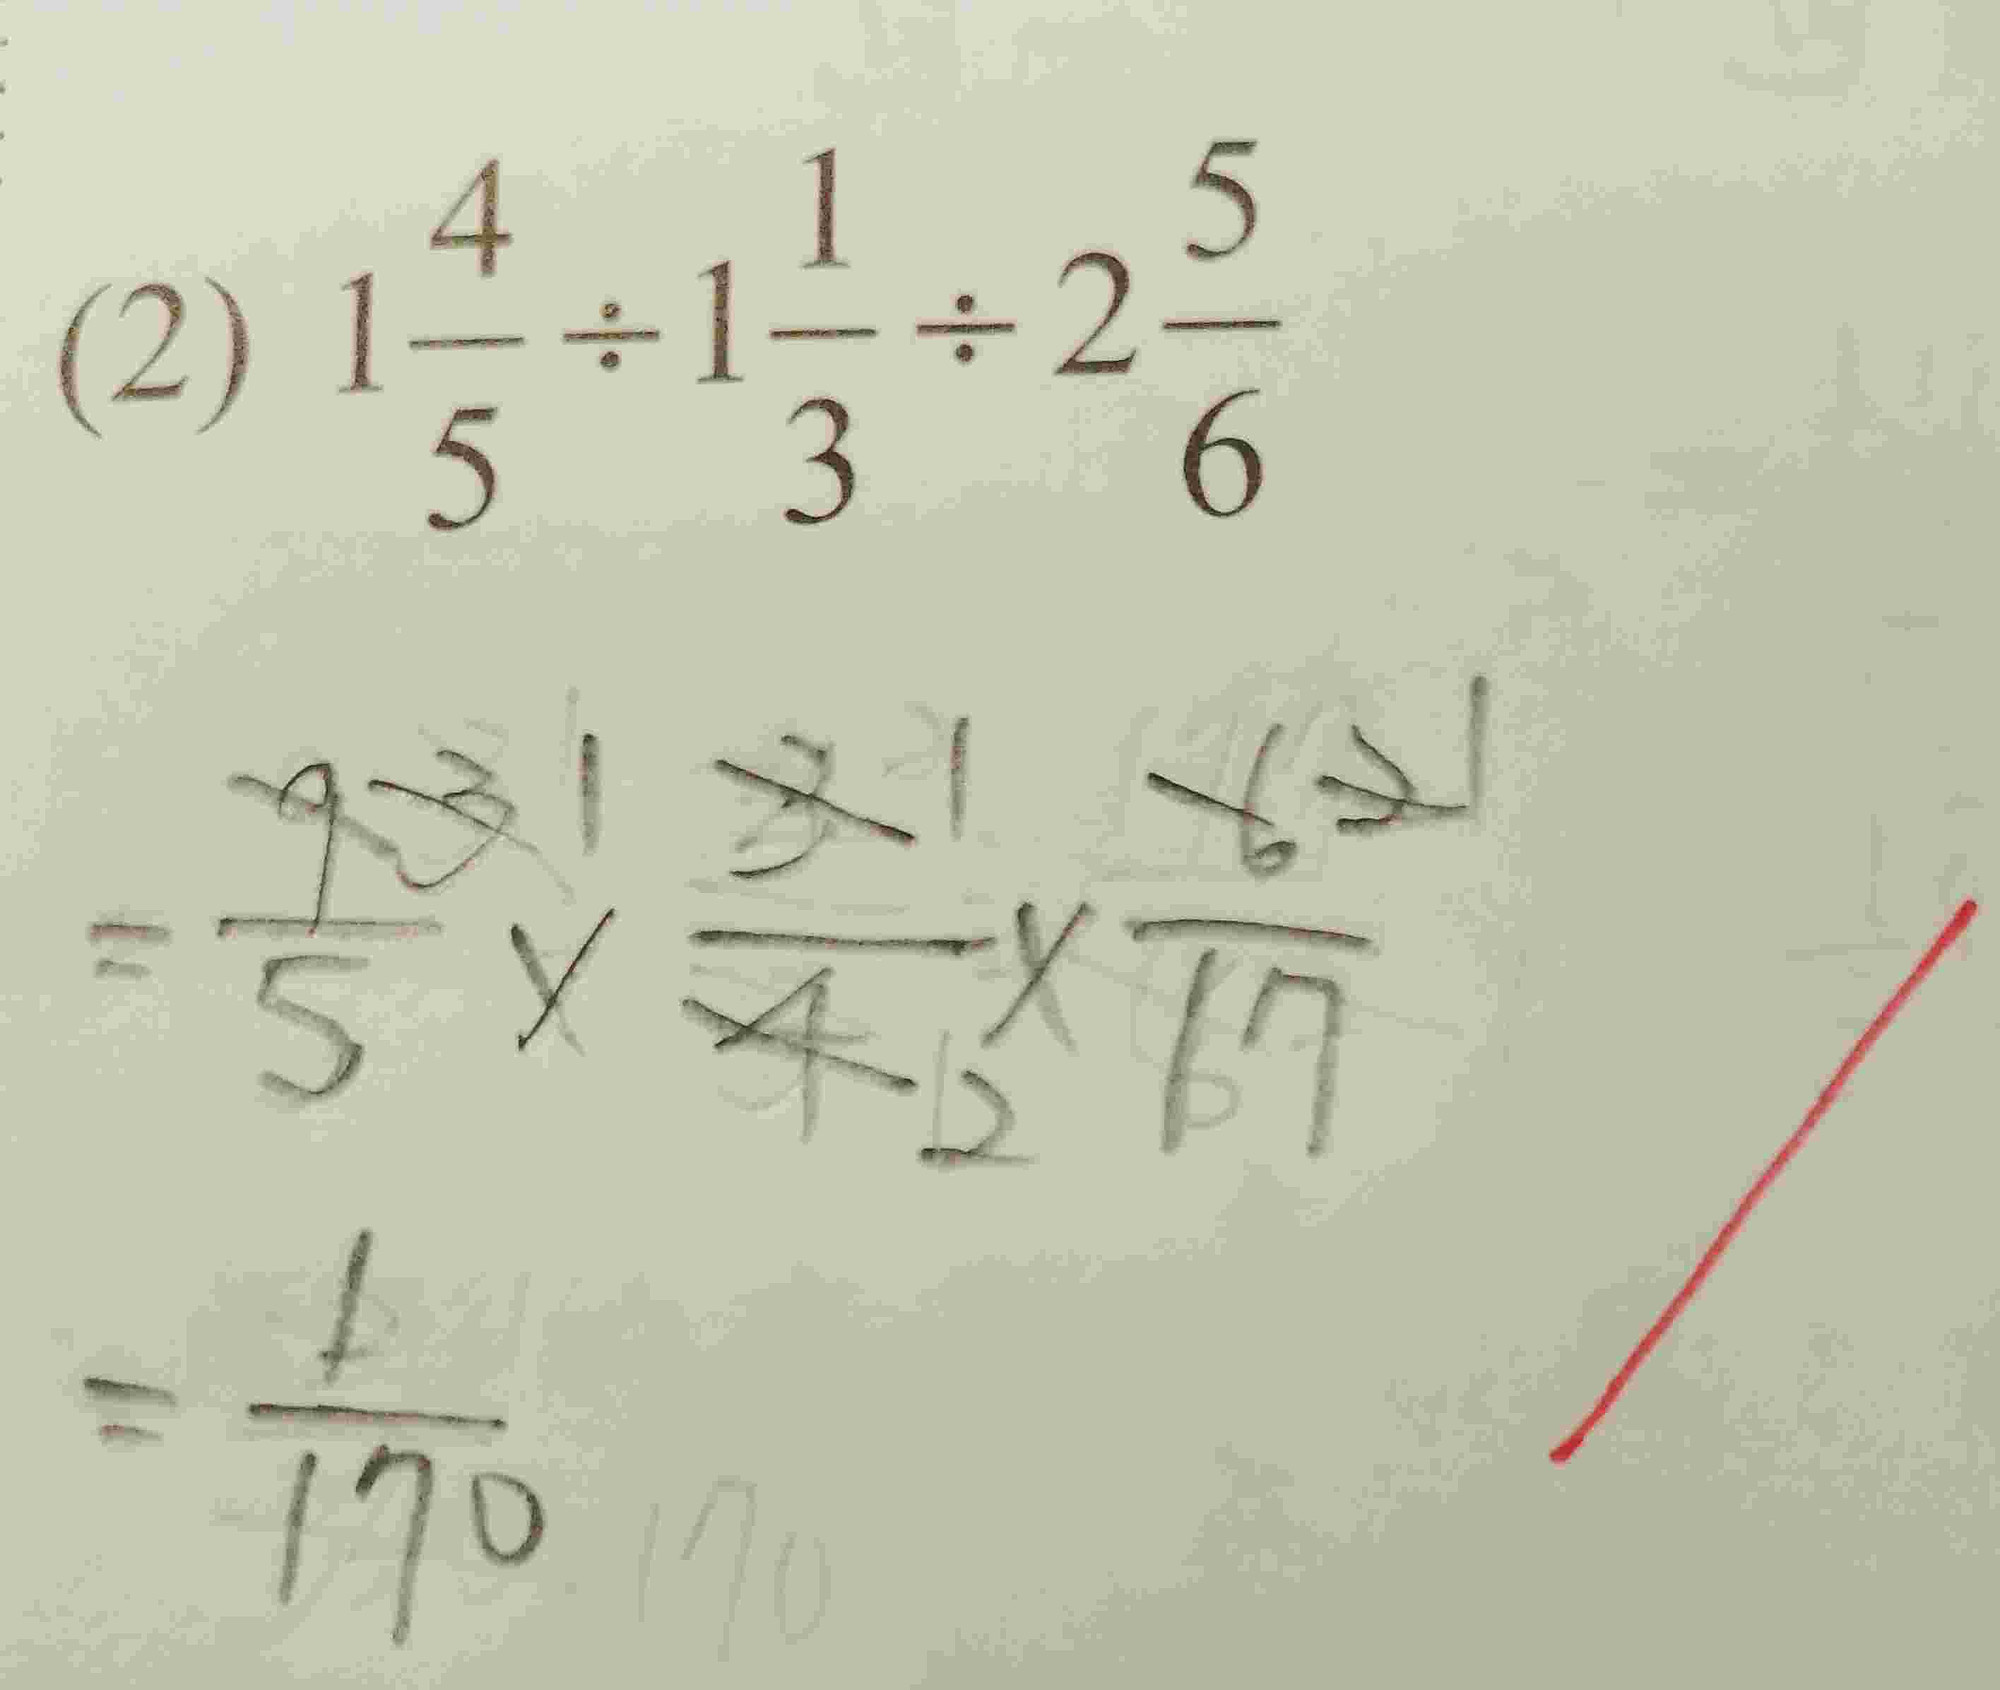 (2) 1 4/5 ÷ 1 1/3 ÷ 2 5/6
= 9 3 1/5 × 3 1/4 2 × 6 2 1/17
= 1/170 170